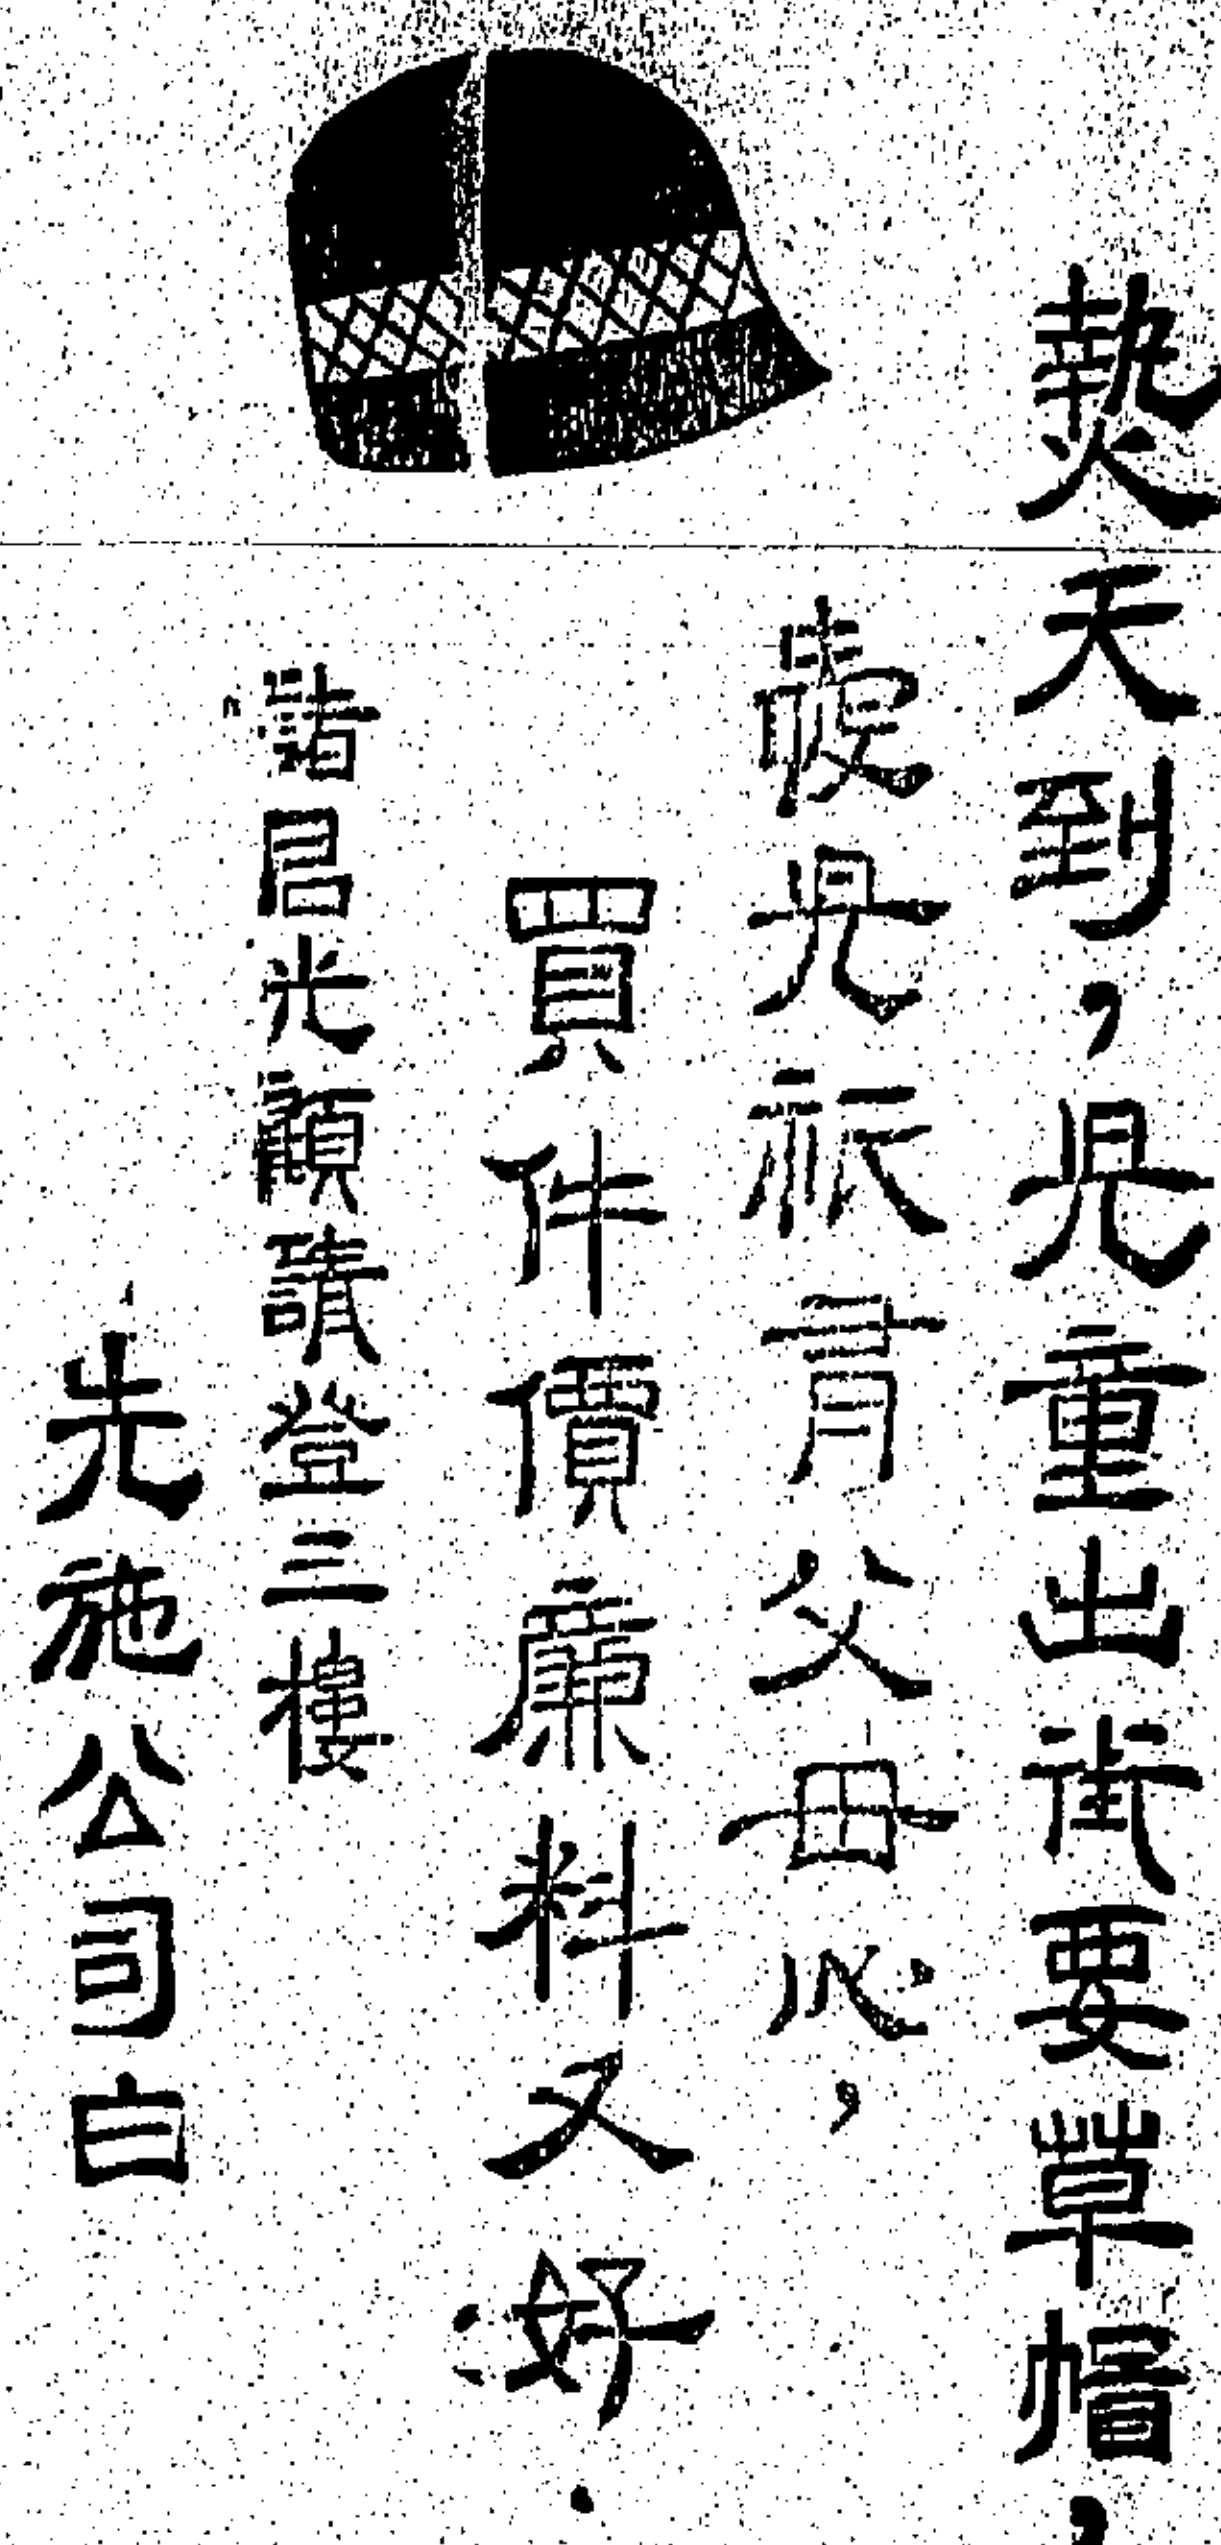 熱天到，兒童出街要草帽，
兒父母心，
買件價廉料又好．
諸君光顧請登三樓
先施公司白